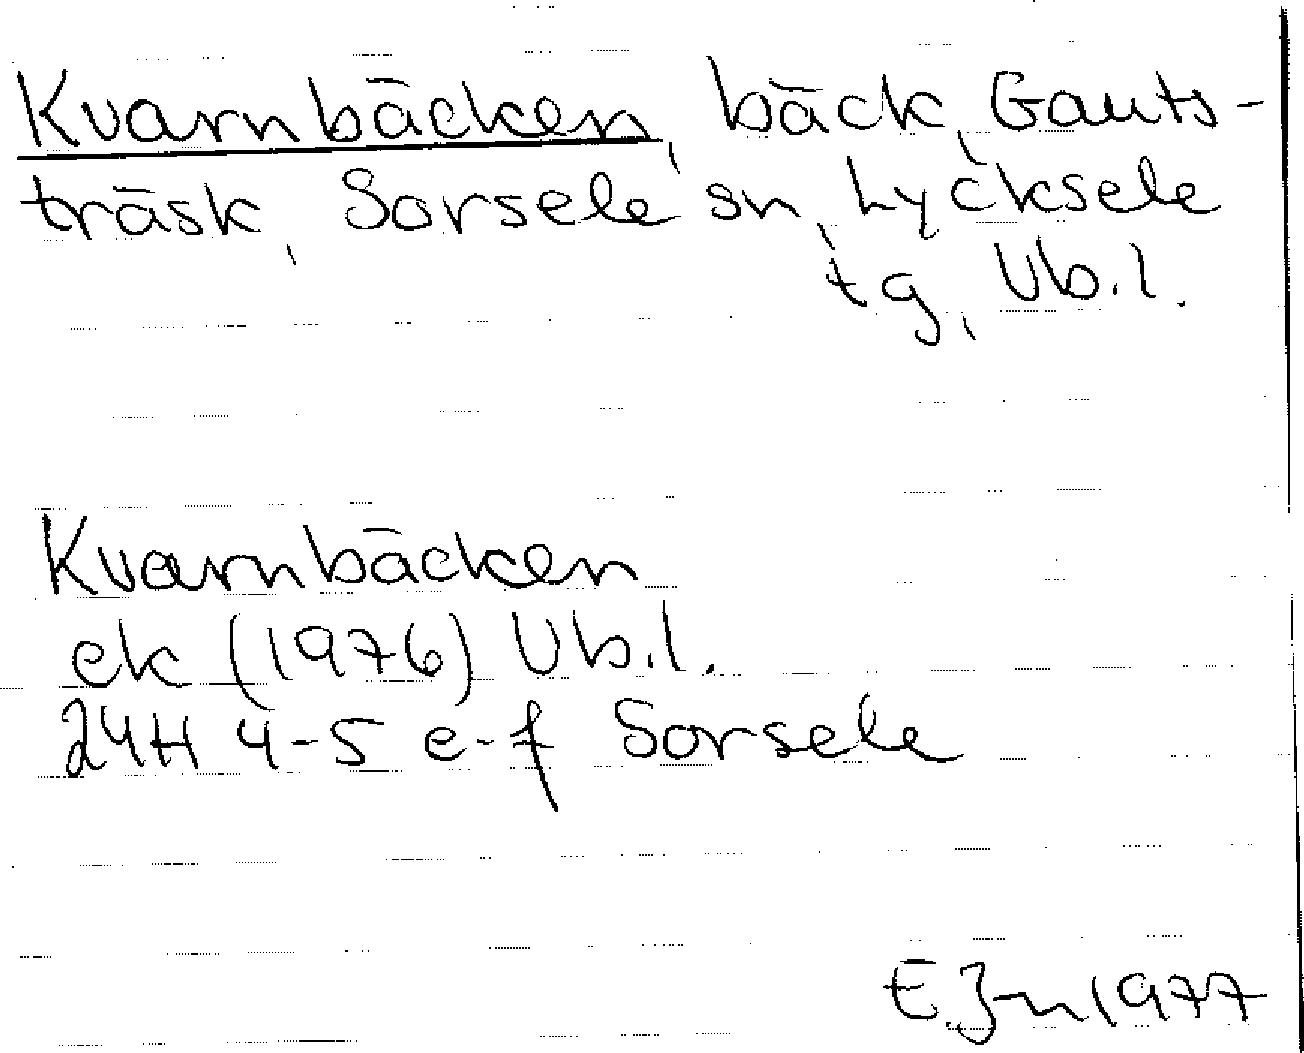 Kvarnbäcken, bäck, Gauts-
träsk, Sorsele sn, Lycksele
tg, Vb.l.
Kvarnbäcken
ek (1976) Vb.l.
24H 4-5 e-f Sorsele
E. 1977